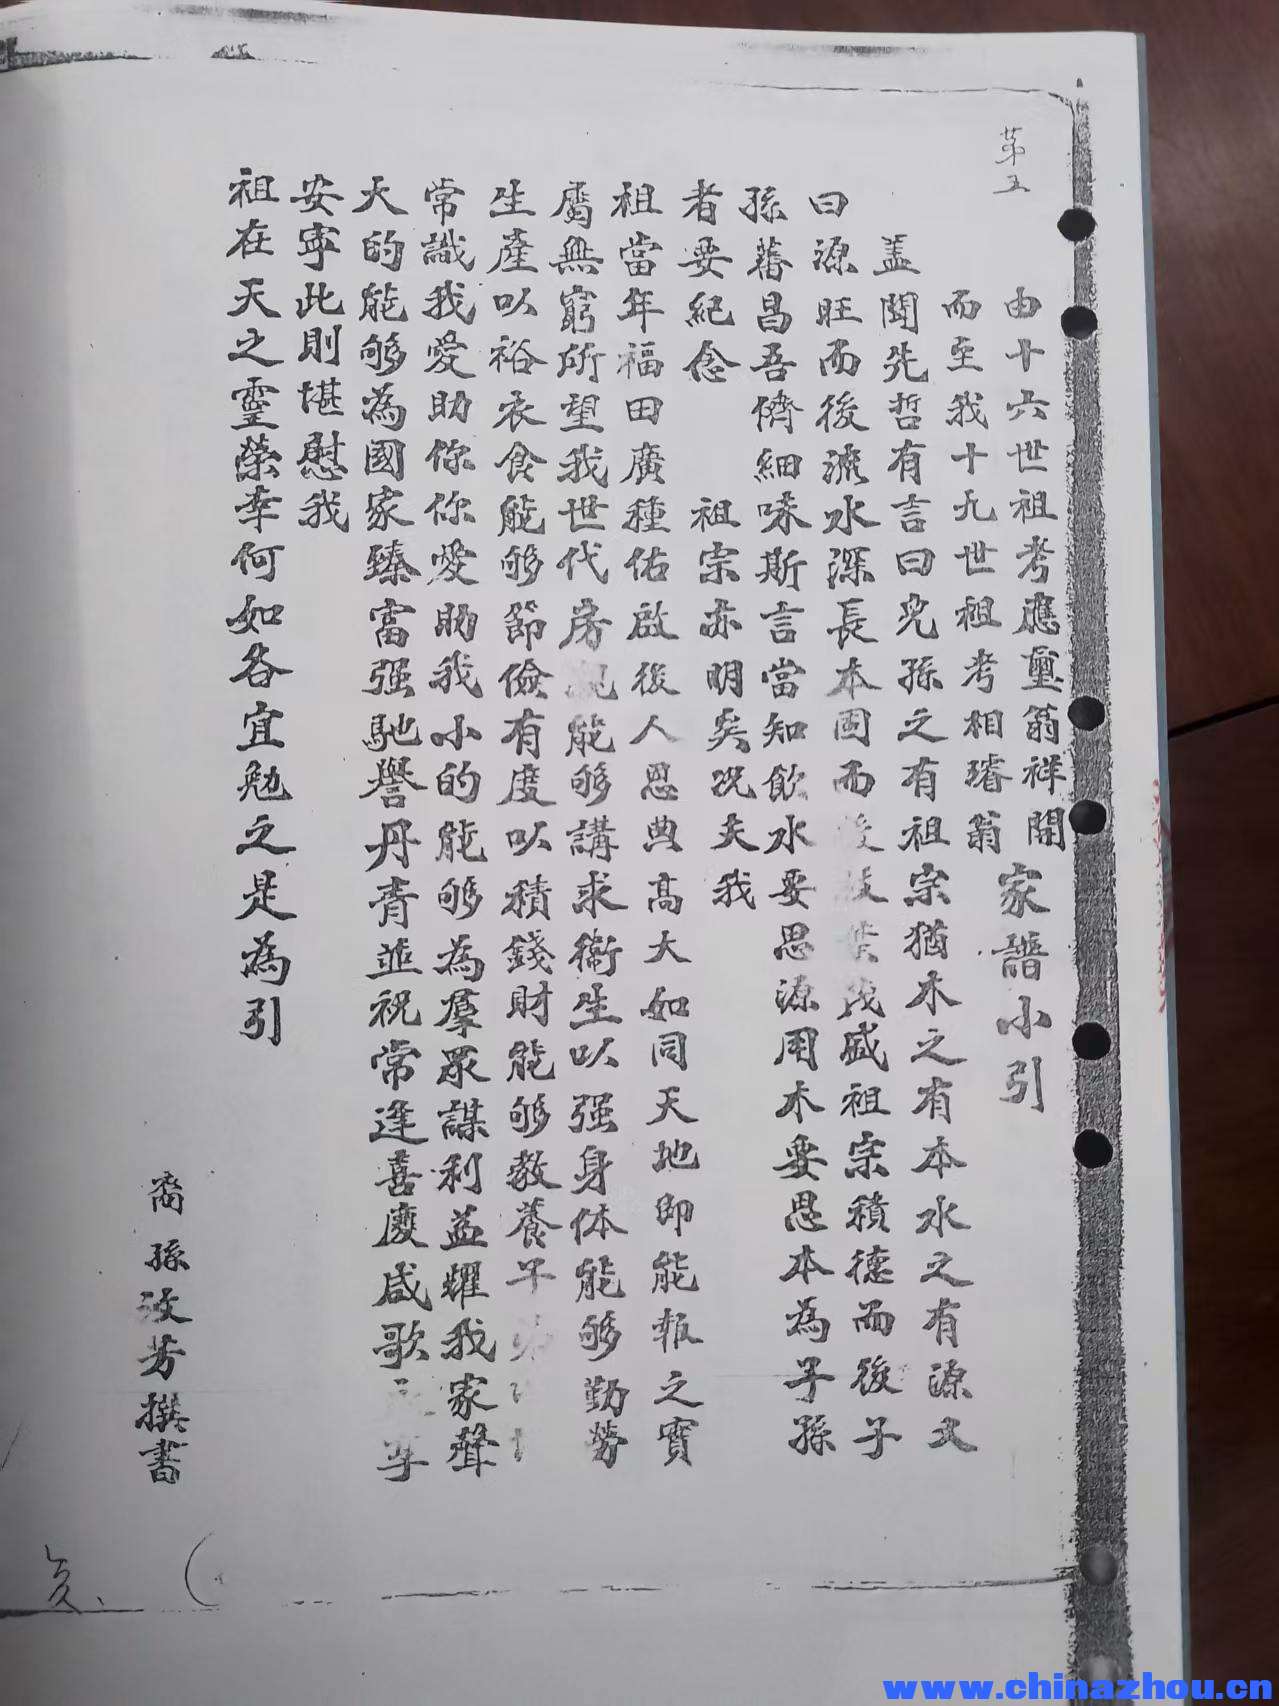 第五
由十六世祖考應璽翁祥開
而至我十九世祖考相璿翁
家譜小引
盖聞先哲有言曰兒孫之有祖宗猶木之有本水之有源又
曰源旺而後流水深長本固而後枝葉茂盛祖宗積德而後子
孫蕃昌吾儕細味斯言當知飲水要思源用木要思本為子孫
者要紀念 祖宗亦明矣况夫我
祖當年福田廣種佑啟後人恩典高大如同天地即能報之實
屬無窮所望我世代房親能够講求衛生以强身体能够勤勞
生產以裕衣食能够節儉有度以積錢財能够教養子
常識我愛助你你愛助我小的能够為羣眾謀利益耀我家聲
大的能够為國家臻富强馳譽丹青並祝常逢喜慶咸歌
安寧此則堪慰我
祖在天之靈榮幸何如各宜勉之是為引
裔孫汶芳撰書
www.chinazhou.cn